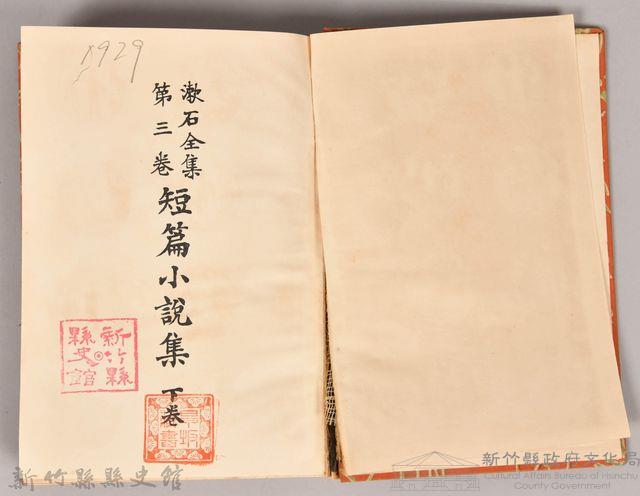 1929
漱石全集
第三卷
短篇小說集 下卷
新竹縣
縣史館
新竹縣縣史館
新竹縣政府文化局
Cultural Affairs Bureau of Hsinchu
County Government